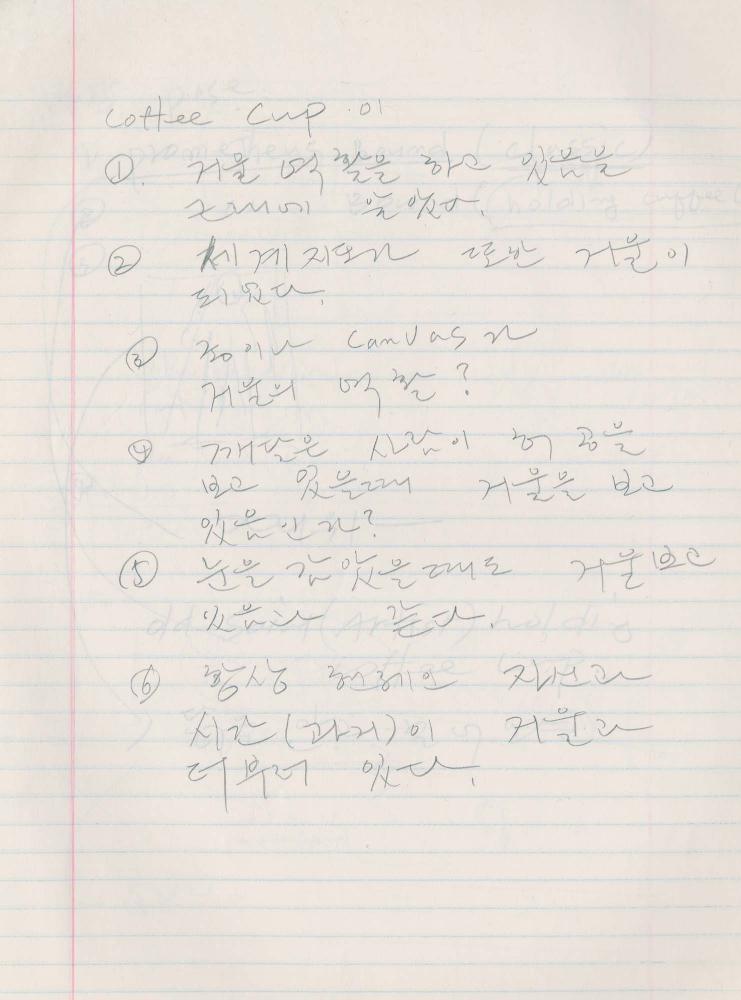 Coffee Cup 이
①. 거울 역할을 하고 있음을
그대에 알았다.
② 세계지도가 또한 거울이
되었다.
③ 종이나 canvas가
거울의 역할?
④ 깨달은 사람이 허공을
보고 있을때 거울을 보고
있음인가?
⑤ 눈을 감았을때도 거울보고
있음과 같다.
⑥ 항상 현재인 자신과
시간(과거)이 거울과
더부러 있다.